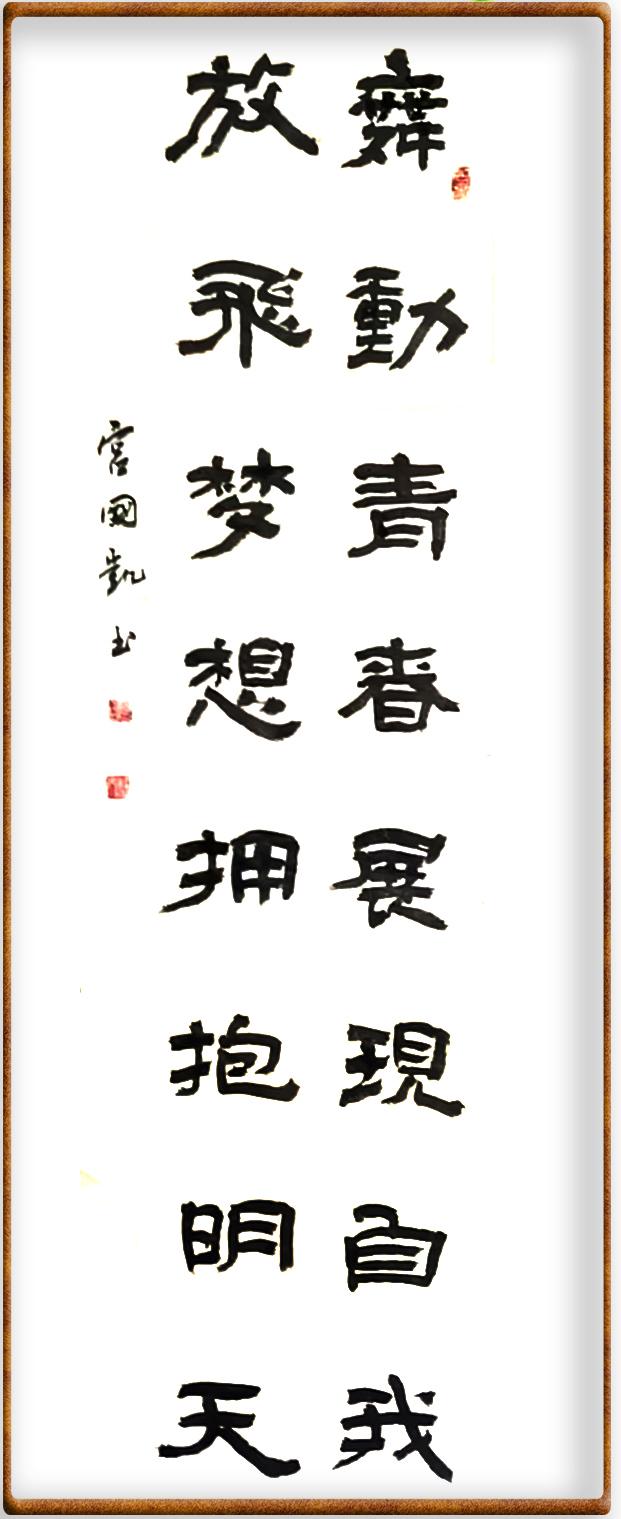 舞動青春展現自我
放飛梦想拥抱明天
宫國凱书